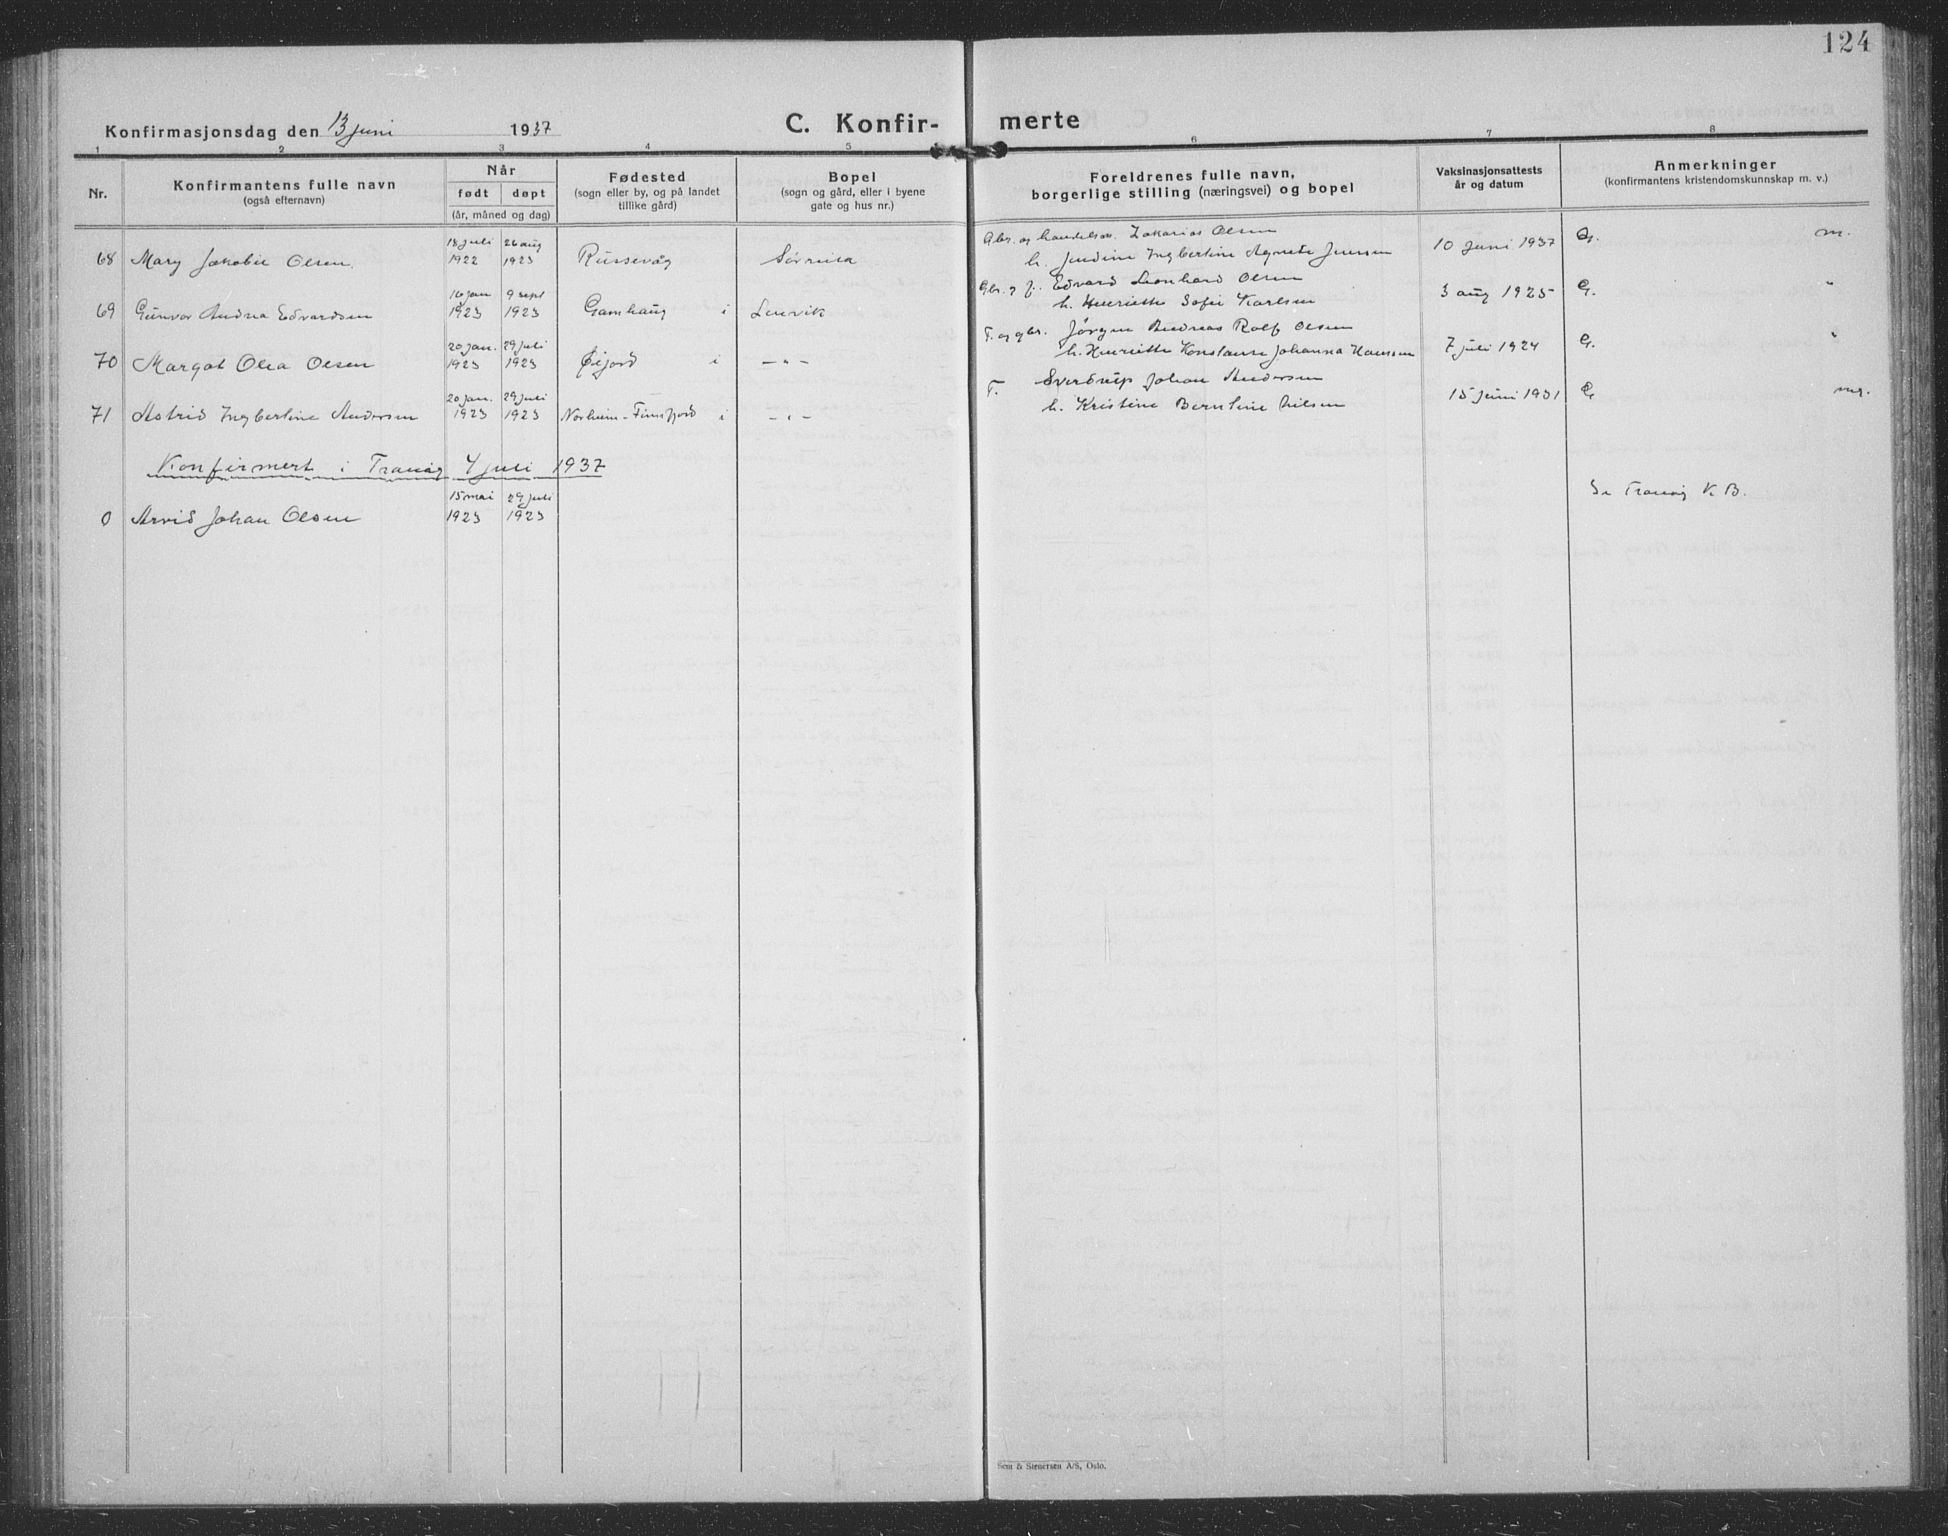 124
Konfirmasjonsdag den 13 juni 1937
C. Konfir- merte
1 2 3 4 5 6 7 8
Nr.
Konfirmantens fulle navn
(også efternavn)
Når
født døpt
(år, måned og dag)
Fødested
(sogn eller by, og på landet
tillike gård)
Bopel
(sogn og gård, eller i byene
gate og hus nr.)
Foreldrenes fulle navn,
borgerlige stilling (næringsvei) og bopel
Vaksinasjonsattests
år og datum
Anmerkninger
(konfirmantens kristendomskunnskap m. v.)
18 juli 26 aug Gbr. og handelsm. Zakarias Olsen
68 Mary Jakobie Olsen 1922 1923 Russevåg Sørreisa h. Jendine Ingbertine Agnete Jensen 10 juni 1937 G. m.
16 jan 9 sept Gbr. Edvard Leonhard Olsen
69 Gunvor Andrea Edvardsen 1923 1923 Gamhaug i Lenvik h. Henriette Sofie Karlsen 3 aug 1925 G. "
20 jan. 29 juli F. og gbr. Jørgen Andreas Rolf Olsen
70 Margot Olea Olsen 1923 1923 Øijord i —"— h. Henriette Konstanse Johanna Hansen 7 juli 1924 G. "
20 jan. 29 juli F. Sverdrup Johan Andersen
71 Astrid Ingbertine Andersen 1923 1923 Norheim - Finnfjord i —"— h. Kristine Berntine Nilsen 15 juni 1931 G mg.
Konfirmert i Tranøy 4 juli 1937
15 mai 29 juli Se Tranøy K. B.
0 Arvid Johan Olsen 1923 1923
Sem & Stenersen A/S, Oslo.